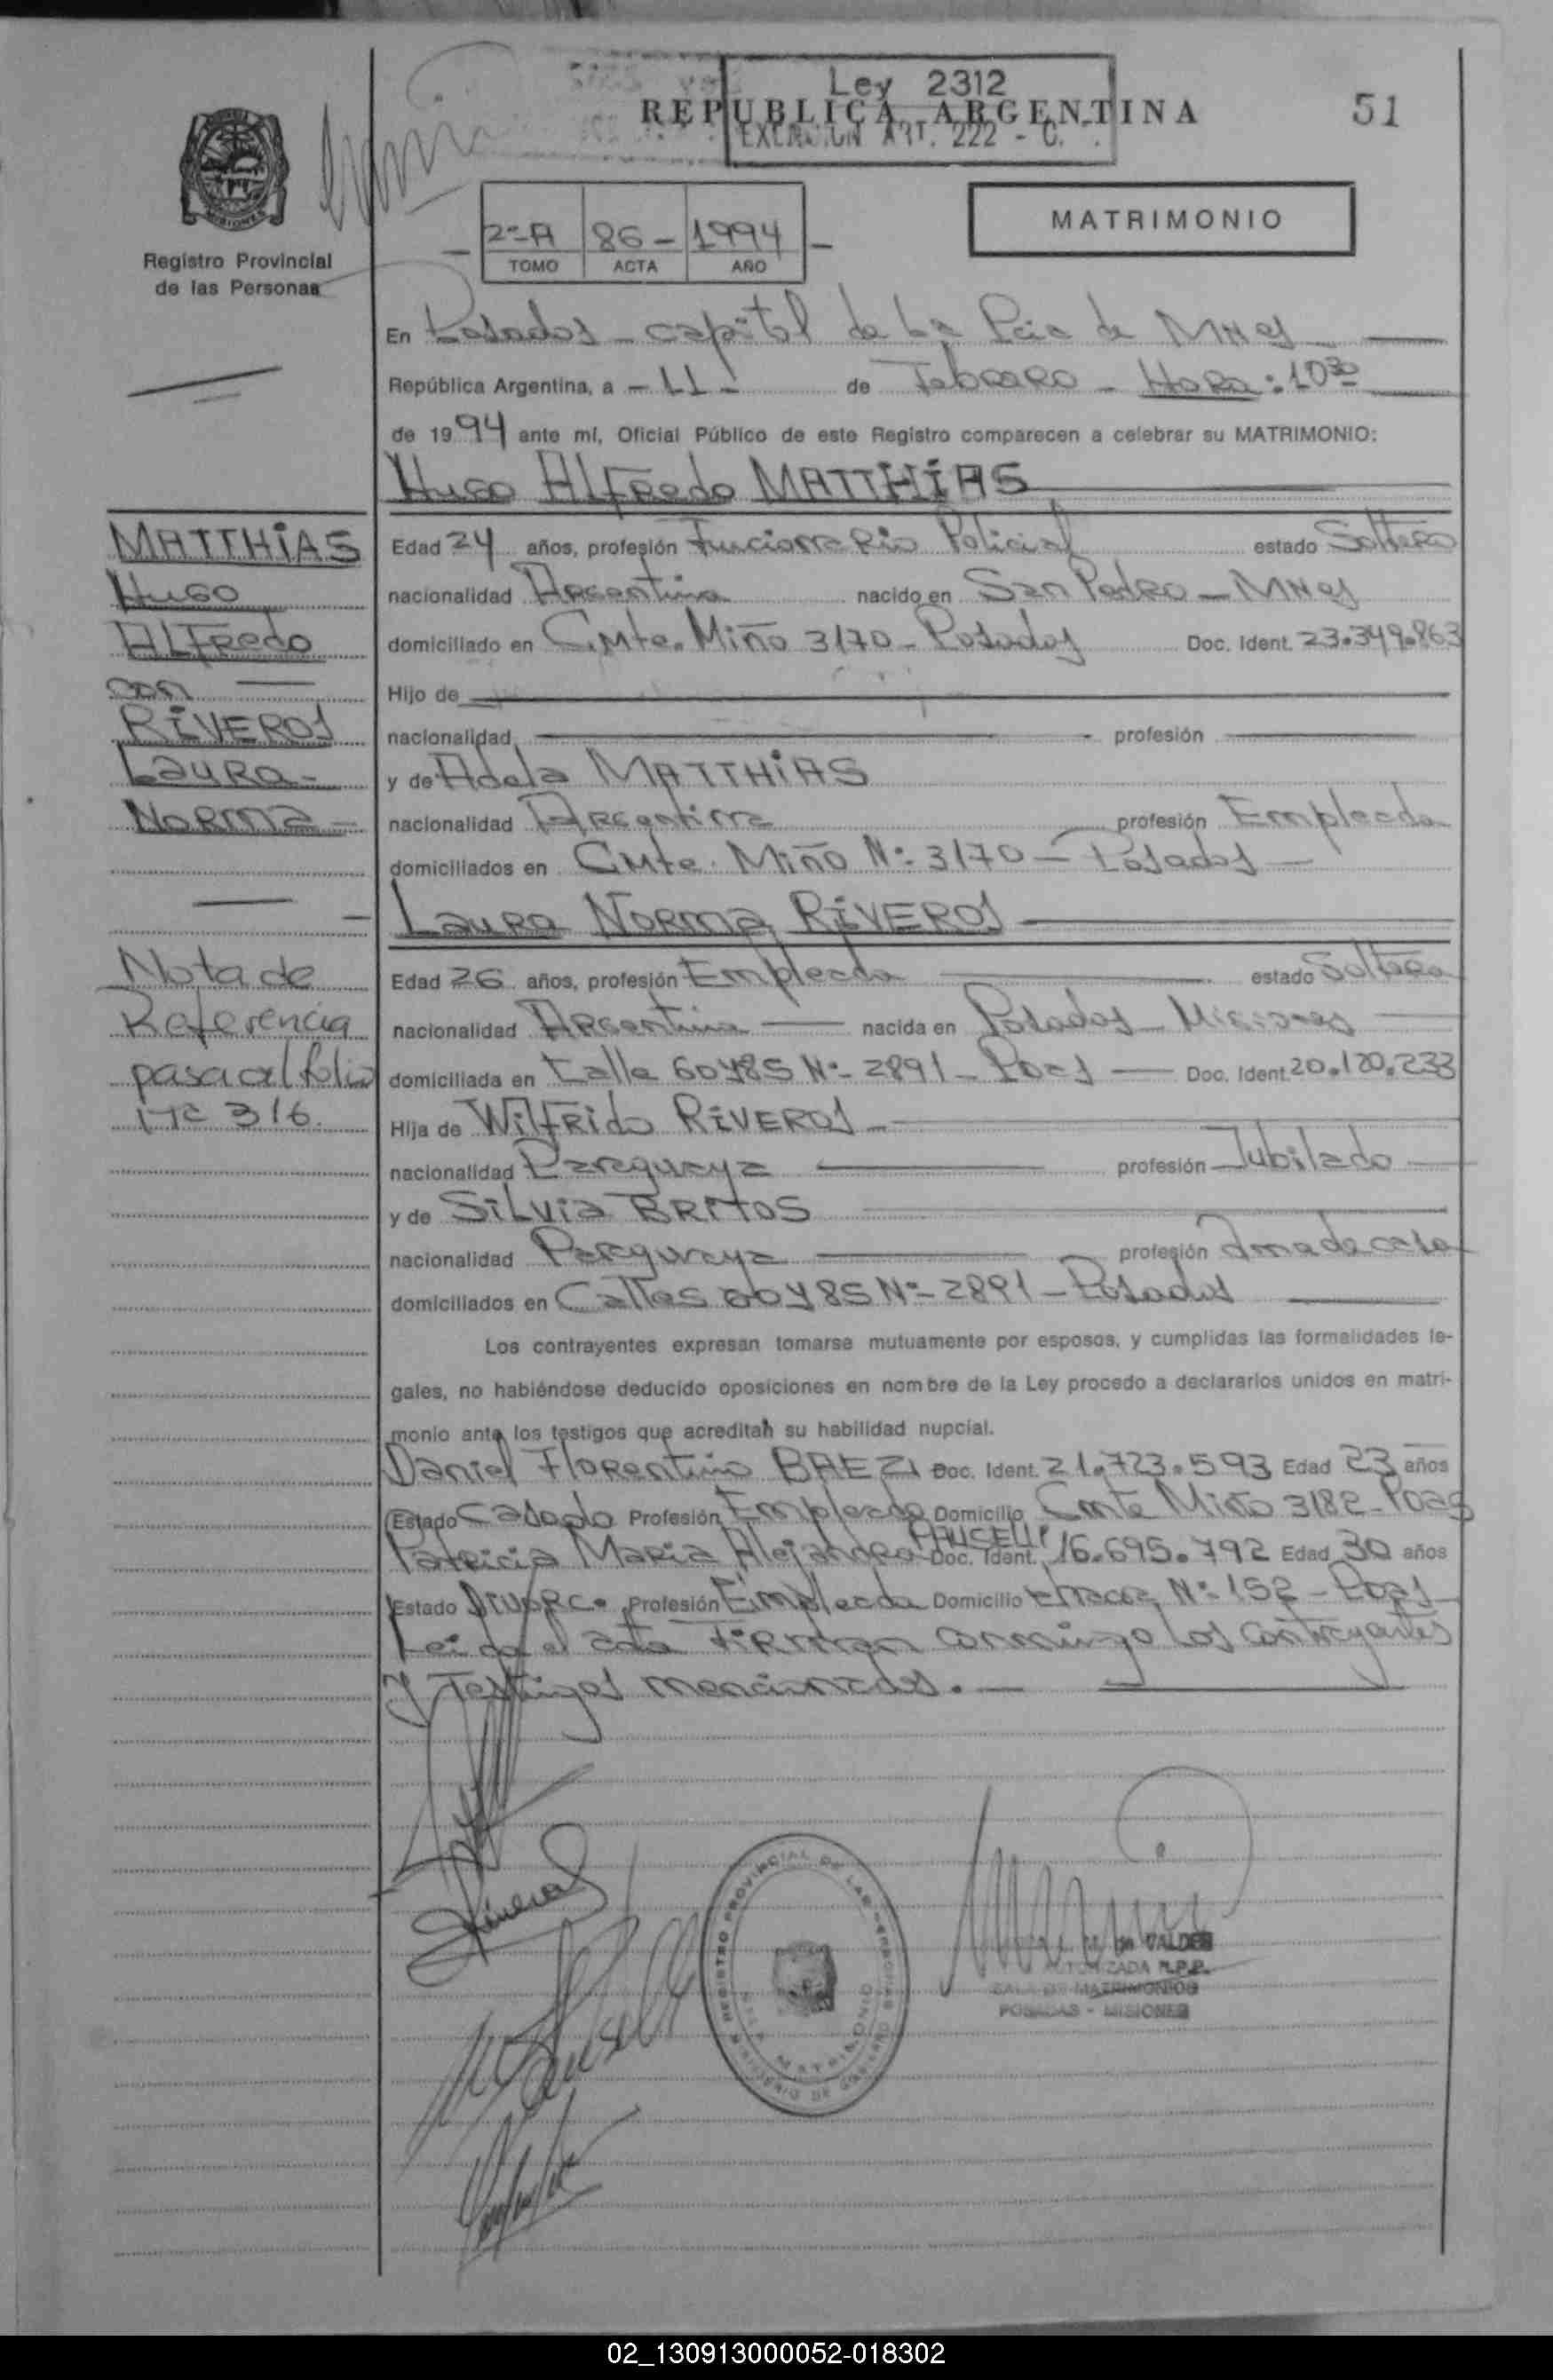 Ley 2312
REPUBLICA ARGENTINA
ART. 222 - C.
51
2º-A 86- 1994
TOMO ACTA AÑO
MATRIMONIO
MISIONES
Registro Provincial
de las Personas
En Posadas - capital de La Pcia de Mnes
República Argentina, a - 11 - de Febrero - Hora: 10 30
de 1994 ante mí, Oficial Público de este Registro comparecen a celebrar su MATRIMONIO:
Hugo Alfredo MATTHIAS
Edad 24 años, profesión Funcionario Policial estado Soltero
nacionalidad Argentina nacido en San Pedro - Mnes
domiciliado en Cmte. Miño 3170 - Posadas Doc. Ident. 23.349.863
Hijo de
nacionalidad profesión
y de Adela MATTHIAS
nacionalidad Argentina profesión Empleada
domiciliados en Cmte. Miño Nº 3170 - Posadas -
Laura Norma RIVEROS
Edad 26 años, profesión Empleada estado Soltera
nacionalidad Argentina nacida en Posadas Misiones
domiciliada en Calle 60 y 85 Nº 2891 - Pdas Doc. Ident. 20.120.233
Hija de Wilfrido RIVEROS -
nacionalidad Paraguaya profesión Jubilado
y de Silvia BRITOS
nacionalidad Paraguaya profesión Ama de casa
domiciliados en Calles 60 y 85 Nº 2891 - Posadas
Los contrayentes expresan tomarse mutuamente por esposos, y cumplidas las formalidades le-
gales, no habiéndose deducido oposiciones en nombre de la Ley procedo a declararlos unidos en matri-
monio ante los testigos que acreditan su habilidad nupcial.
Daniel Florentino BAEZ Doc. Ident. 21.723.593 Edad 23 años
Estado Casado Profesión Empleado Domicilio Cmte Miño 3182 - Pdas
PAUSELLI
Patricia Maria Alejandra Doc. Ident. 16.695.792 Edad 30 años
Estado Divorc. Profesión Empleada Domicilio Nº 152 - Pdas
Leida el acta firman conmigo los contrayentes
y Testigos mencionados. -
MATTHIAS
Hugo
Alfredo
con
RIVEROS
Laura -
Norma -
Nota de
Referencia
pasa al folio
Nº 316.
REGISTRO PROVINCIAL DE LAS PERSONAS
MINISTERIO DE GOBIERNO
SALA MATRIMONIO
de VALDES
AUTORIZADA R.P.P.
SALA DE MATRIMONIOS
POSADAS - MISIONES
02_130913000052-018302